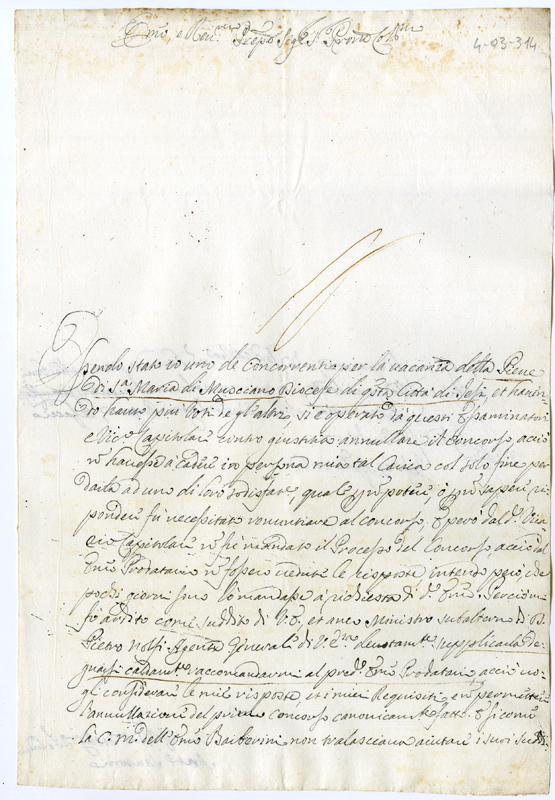 4-03-314
Essendo stato io uno de Concorrenti per la vacanza della Pieve
di S.ta Maria di Musciano Diocese di q.sta Città di Jesi, et haven
do havuto più voti de gl'altri, si è operato da questi Esaminatori
e Vic.o Capitolare contro giustitia annullare il Concorso acciò
n̄ havesse à cadere in persona mia tal Carica col solo fine per
darla ad uno di loro sodisfat.e, quale n̄ potere, ò n̄ saper ri
pondere fù necessitato renuntiare al concorso, e però dal d.o Vica
rio Capitolare n̄ fù mandato il Processo del Concorso acciò dal
Prodatario n̄ fossero vedute le risposte, intendo però, che
pochi giorni sono lo mandasse à richiesta di d.o Em̄o. Perciò mi
fò ardito come suddito di V.E., et anco Ministro subalterno di
Pietro Nolfi Agente Generale di V.E. supplicarla de
gnarsi caldam.te raccomandarmi al pred.o Em̄o Prodatario, acciò vo
gli considerare le mie risposte, et i miei Requisiti, e n̄ permettere
l'annullazione del primo Concorso canonicam.te fatto. E sì come
la c.m. dell'Em̄o Barberini non tralasciava aiutare i suoi sudd.i